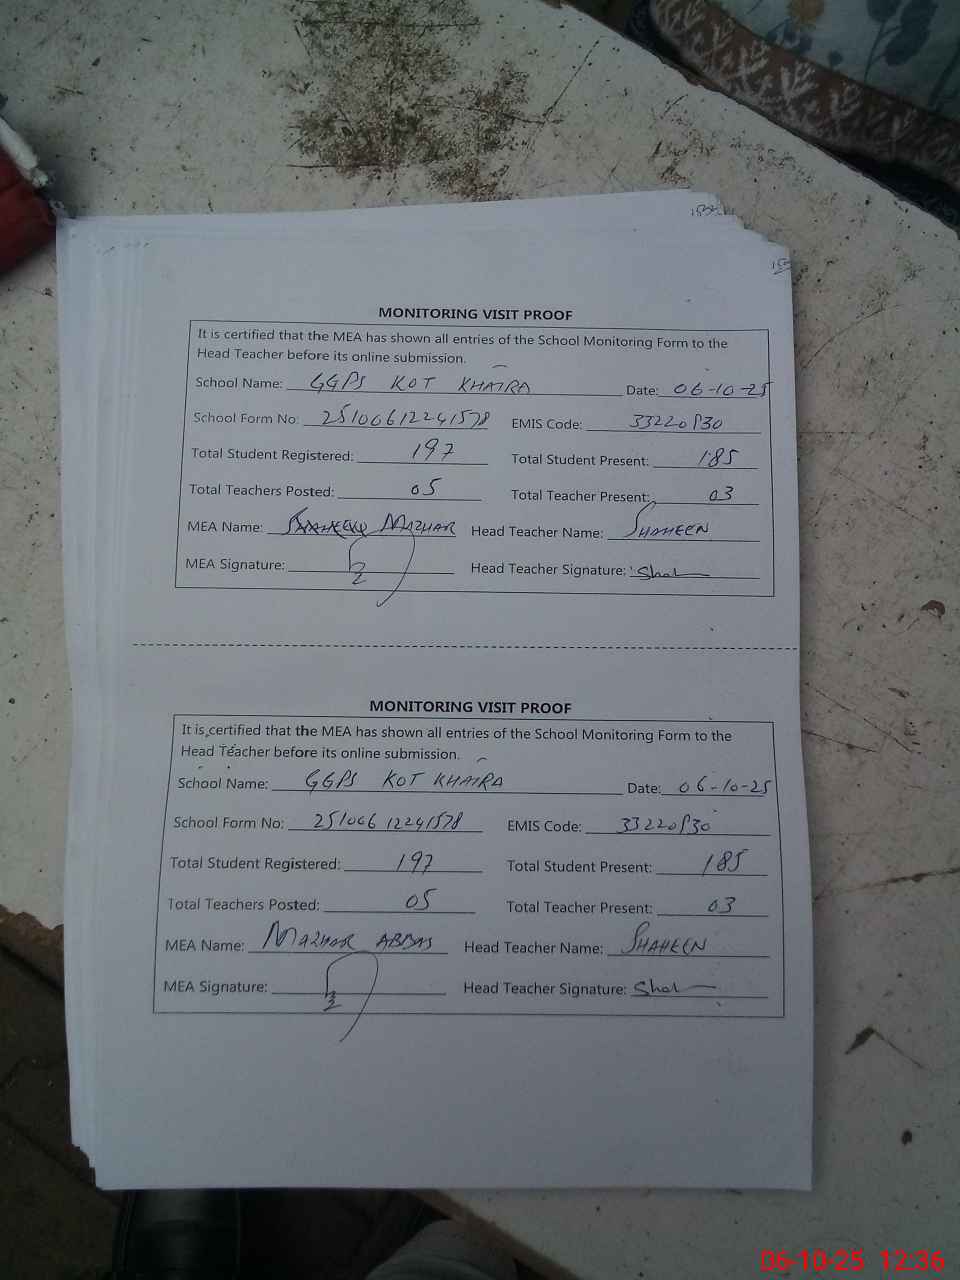 MONITORING VISIT PROOF
It is certified that the MEA has shown all entries of the School Monitoring Form to the
Head Teacher before its online submission.
School Name: GGPS KOT KHAIRA Date: 06-10-25
School Form No: 25100612241578 EMIS Code: 33220830
Total Student Registered: 197 Total Student Present: 185
Total Teachers Posted: 05 Total Teacher Present: 03
MEA Name: MAZHAR Head Teacher Name: SHAHEEN
MEA Signature: Head Teacher Signature:
MONITORING VISIT PROOF
It is certified that the MEA has shown all entries of the School Monitoring Form to the
Head Teacher before its online submission.
School Name: GGPS KOT KHAIRA Date: 06-10-25
School Form No: 25100612241578 EMIS Code: 33220830
Total Student Registered: 197 Total Student Present: 185
Total Teachers Posted: 05 Total Teacher Present: 03
MEA Name: MAZHAR ABBAS Head Teacher Name: SHAHEEN
MEA Signature: Head Teacher Signature:
06-10-25 12:36